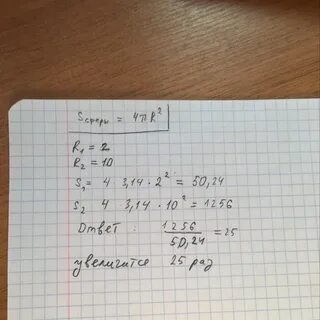 Sсферы = 4πR²
R₁ = 2
R₂ = 10
S₁ = 4 · 3,14 · 2² = 50,24
S₂ 4 · 3,14 · 10² = 1256
Ответ : 1256/50,24 = 25
увеличится 25 раз